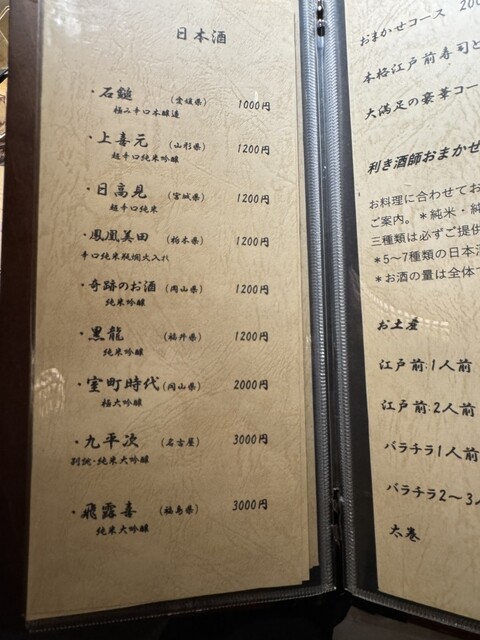 日本酒
・石鎚 (愛媛県) 1000円
極み辛口本醸造
・上喜元 (山形県) 1200円
超辛口純米吟醸
・日高見 (宮城県) 1200円
超辛口純米
・鳳凰美田 (栃木県) 1200円
辛口純米瓶燗火入れ
・奇跡のお酒 (岡山県) 1200円
純米吟醸
・黒龍 (福井県) 1200円
純米吟醸
・室町時代 (岡山県) 2000円
極大吟醸
・九平次 (名古屋) 3000円
別誂・純米大吟醸
・飛露喜 (福島県) 3000円
純米大吟醸
おまかせコース 200
本格江戸前寿司と
大満足の豪華コー
利き酒師おまかせ
お料理に合わせてお
ご案内。*純米・純
三種類は必ずご提供
*5〜7種類の日本酒
*お酒の量は全体で
お土産
江戸前:1人前
江戸前:2人前
バラチラ1人前
バラチラ2〜3人
太巻